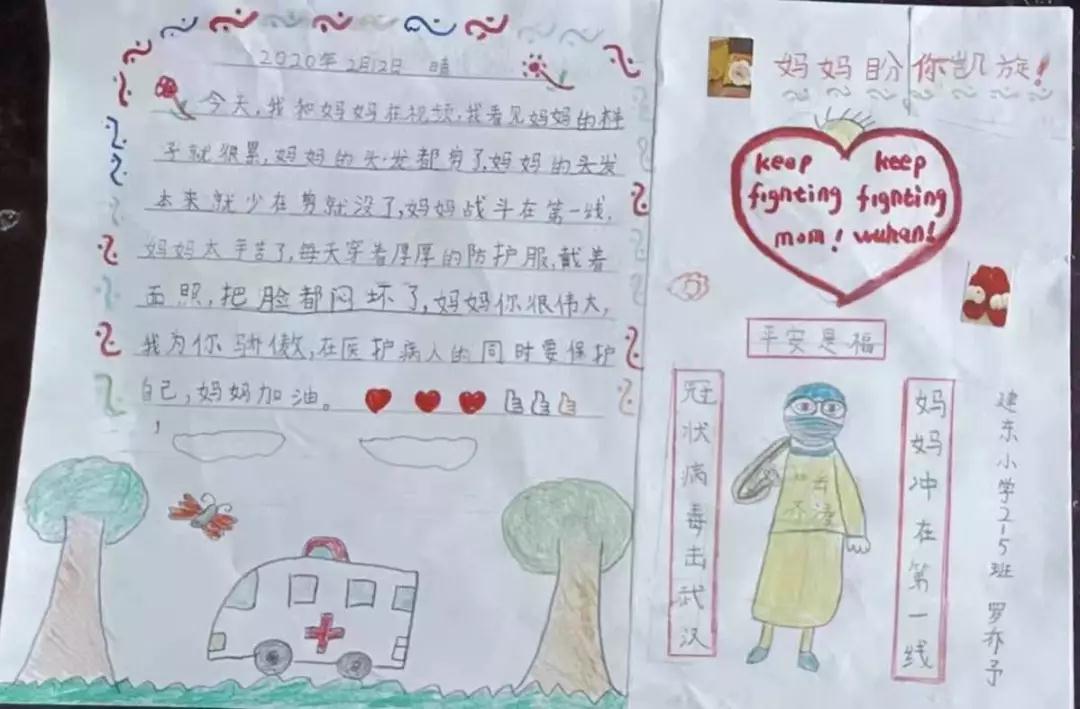 2020年2月12日 晴
今天,我和妈妈在视频,我看见妈妈的样
子就很累,妈妈的头发都剪了,妈妈的头发
本来就少在剪就没了,妈妈战斗在第一线,
妈妈太辛苦了,每天穿着厚厚的防护服,戴着
面照,把脸都闷坏了,妈妈你很伟大,
我为你骄傲,在医护病人的同时要保护
自己,妈妈加油。
妈妈盼你凯旋!
keep keep
fignting fignting
mom! wuhan!
平安是福
冠状病毒击武汉
妈妈冲在第一线
建东小学2-5班 罗亦予